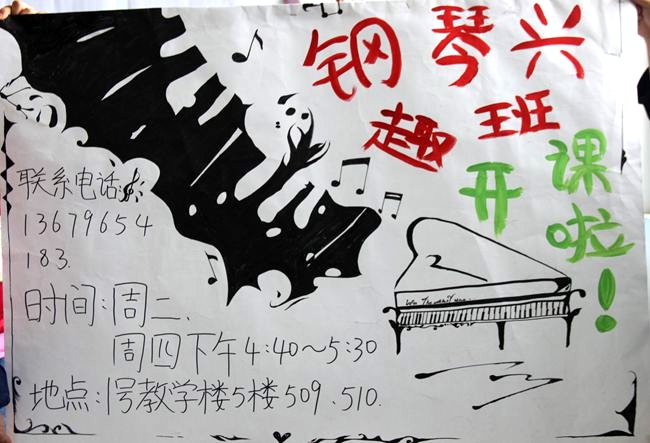 钢琴兴
趣班
开课啦!
联系电话
13679654
183.
时间:周二、
周四下午4:40~5:30
地点:1号教学楼5楼509.510.